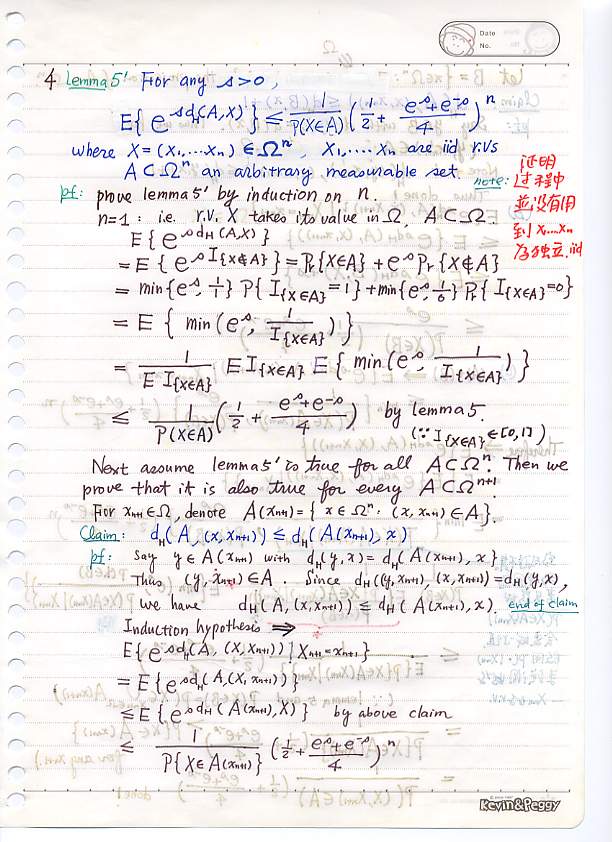 Date
No.
4 Lemma 5' For any s>0,
E{e^{s d_H(A,X)}} ≤ 1/P(X∈A) (1/2 + (e^s+e^{-s})/4)^n
where X=(X₁,…Xₙ)∈Ωⁿ, X₁,…Xₙ are iid r.vs
A⊂Ωⁿ an arbitrary measurable set.
note: 证明
过程中
並没有用
到 X₁…Xₙ
為独立, iid
pf: prove lemma 5' by induction on n.
n=1: i.e. r.v. X takes its value in Ω, A⊂Ω.
E{e^{s d_H(A,X)}}
= E{e^{s I{X∉A}}} = Pr{X∈A} + e^s Pr{X∉A}
= min{e^s, 1/1} P{I{X∈A}=1} + min{e^s, 1/0} Pr{I{X∈A}=0}
= E{min(e^s, 1/I{X∈A})}
= 1/E I{X∈A} E I{X∈A} E{min(e^s, 1/I{X∈A})}
≤ 1/P(X∈A) (1/2 + (e^s+e^{-s})/4) by lemma 5.
(∵ I{X∈A}∈[0,1])
Next assume lemma 5' is true for all A⊂Ωⁿ. Then we
prove that it is also true for every A⊂Ωⁿ⁺¹.
For xₙ₊₁∈Ω, denote A(xₙ₊₁)={x∈Ωⁿ: (x, xₙ₊₁)∈A}.
Claim: d_H(A, (x, xₙ₊₁)) ≤ d_H(A(xₙ₊₁), x)
pf: Say y∈A(xₙ₊₁) with d_H(y,x)=d_H(A(xₙ₊₁), x}
Thus (y, xₙ₊₁)∈A. Since d_H((y,xₙ₊₁), (x,xₙ₊₁))=d_H(y,x),
we have d_H(A,(x,xₙ₊₁)) ≤ d_H(A(xₙ₊₁), x). end of claim
Induction hypothesis ⇒
E{e^{s d_H(A, (X,Xₙ₊₁))} | Xₙ₊₁=xₙ₊₁}
= E{e^{s d_H(A,(X,xₙ₊₁))}}
≤ E{e^{s d_H(A(xₙ₊₁),X)}} by above claim
≤ 1/P{X∈A(xₙ₊₁)} (1/2 + (e^s+e^{-s})/4)^n
Kevin&Peggy